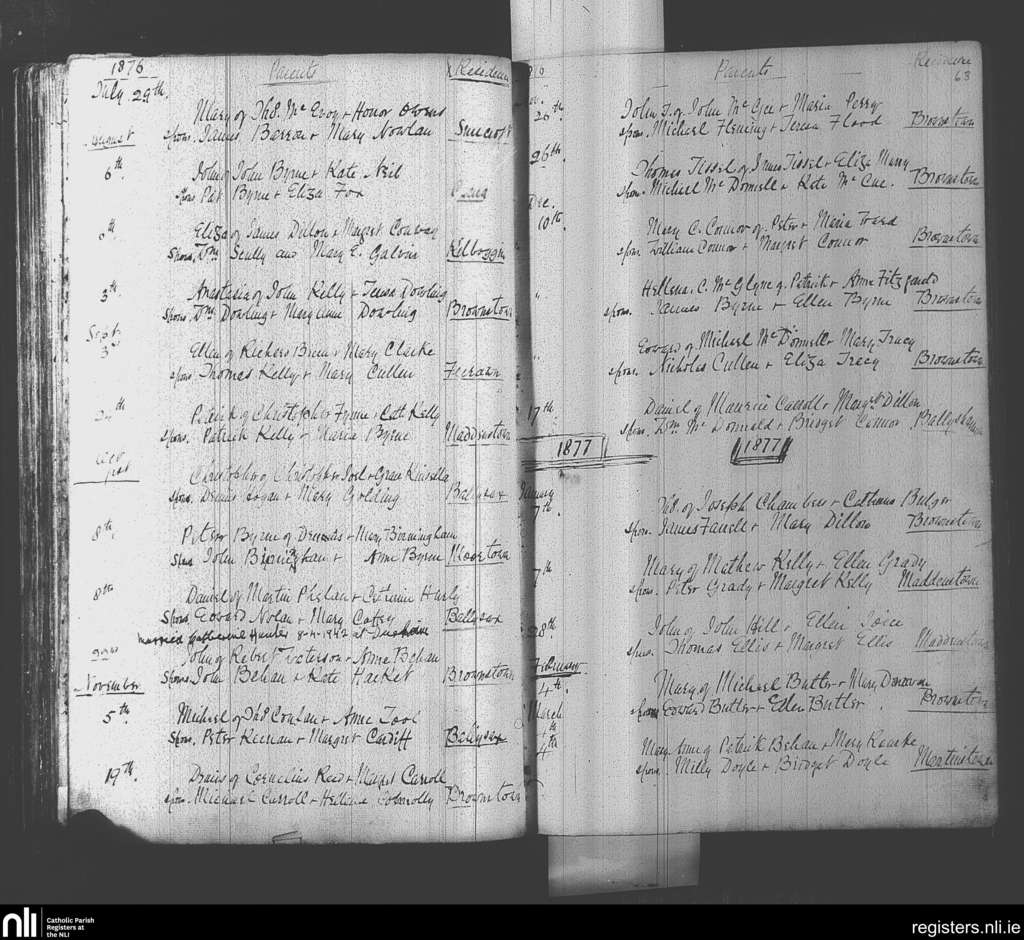 1876
Parents
Residence
July 29th.
Mary of Thos. Mc Evoy + Honor Owens
spons. James Barron + Mary Nowlan
August
6th
John of John Byrne + Kate Neil
Spons Pat Byrne + Eliza Fox
Eliza of James Dillon + Margret Conway
Spons, Wm. Scully and Mary E. Galvin
Anastasia of John Kelly + Teresa Dowling
Spons. Wm. Dowling + Maryanne Dowling Brownstown
Sept.
3rd
Ellen of Breen + Mary Clarke
spons Thomas Kelly + Mary Cullen
24th
Patrick of Christopher + Cath Kelly
spons. Patrick Kelly + Maria Byrne Maddenstown
Oct
Christopher of Christopher + Kinsella
spons. Dennis + Mary Golding Ballysax
8th,
Peter Byrne of Dennis + Mary Birmingham
Spons John Birmingham + Anne Byrne
8th
Daniel of Martin Phelan + Catherine Hurly
Spons, Edward Nolan + Mary Caffey Ballysax
married Catherine Hunter 8-4-1942 at
John of Robert + Anne Behan
Spons John Behan + Kate Hacket Brownstown
November
5th
Michael of Thos Conlan + Anne Tool
Spons. Peter Keenan + Margret Cardiff Ballysax
19th.
of Cornelius + Margt Carroll
spons. Michael Carroll + Connolly Brownstown
Parents
Residence
63
26th
John J. of John Mc Gee + Maria Perry
spons. Michael Fleming + Teresa Flood Brownstown
26th.
Thomas Tissel of James Tissel + Eliza
Spons. Michael Mc Donnell + Kate Mc Cue. Brownstown
Dec.
10th.
Mary C. Connor of Peter + Maria Ward
spons. William Connor + Margret Connor Brownstown
"
Hellena. C. Mc Glyne of Patrick + Anne Fitzgerald
spons. James Byrne + Ellen Byrne Brownstown
"
Edward of Michael Mc Donnell + Mary Tracy
spons. Nicholas Cullen + Eliza Tracy Brownstown
17th.
Daniel of Maurice Carroll + Margt. Dillon
spons. Wm. Mc Donnald + Bridget Connor
1877
1877
January
7th.
Thos. of Joseph Chambers + Catherine Bulger
spons. James Farrell + Mary Dillon Brownstown
7th
Mary of Mathew Kelly + Ellen Grady
spons. Peter Grady + Margret Kelly Maddenstown
28th
John of John Hill + Ellen
spons. Thomas Ellis + Margret Ellis Maddenstown
February
4th.
Mary of Michael Butler + Mary
spons Edward Butler + Ellen Butler. Brownstown
March
4th
4th
Mary Anne of Patrick Behan + Mary Rourke
spons. Milly Doyle + Bridget Doyle Martinstown
nli
Catholic Parish
Registers at
the NLI
registers.nli.ie